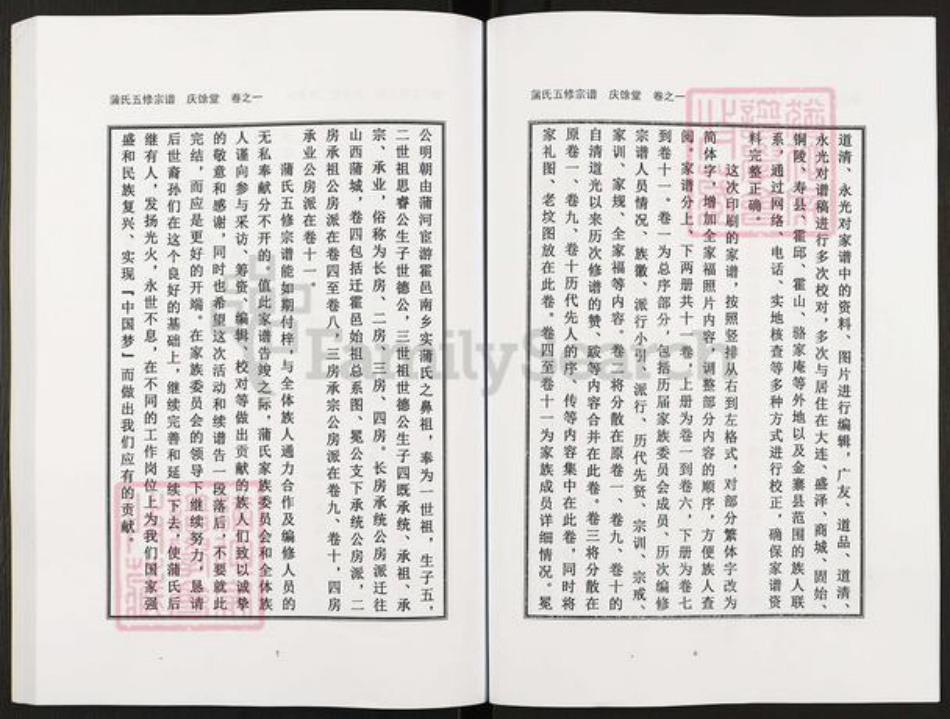 蒲氏五修宗谱 庆馀堂 卷之一
道清、永光对家谱中的资料、图片进行编辑，广友、道品、道清、
永光对谱稿进行多次校对，多次与居住在大连、盛泽、商城、固始、
铜陵、寿县、霍邱、霍山、骆家庵等外地以及金寨县范围的族人联
系，通过网络、电话、实地核查等多种方式进行校正，确保家谱资
料完整正确。
这次印刷的家谱，按照竖排从右到左格式，对部分繁体字改为
简体字，增加全家福照片内容，调整部分内容的顺序，方便族人查
阅。家谱分上、下两册共十一卷，上册为卷一到卷六，下册为卷七
到卷十一。卷一为总序部分，包括历届家族委员会成员、历次编修
宗谱人员情况、族徽、派行小引、派行、历代先贤、宗训、宗戒、
家训、家规、全家福等内容。卷二将分散在原卷一、卷九、卷十的
自清道光以来历次修谱的赞、跋等内容合并在此卷。卷三将分散在
原卷一、卷九、卷十历代先人的序、传等内容集中在此卷，同时将
家礼图、老坟图放在此卷。卷四至卷十一为家族成员详细情况。冕
蒲氏五修宗谱 庆馀堂 卷之一
公明朝由蒲河宦游霍邑南乡实蒲氏之鼻祖，奉为一世祖，生子五，
二世祖思睿公生子世德公，三世祖世德公生子四既承统、承祖、承
宗、承业，俗称为长房、二房、三房、四房。长房承统公房派迁往
山西蒲城，卷四包括迁霍邑始祖总系图、冕公支下承统公房派，二
房承祖公房派在卷四至卷八，三房承宗公房派在卷九、卷十，四房
承业公房派在卷十一。
蒲氏五修宗谱能如期付梓，与全体族人通力合作及编修人员的
无私奉献分不开的，值此家谱告竣之际，蒲氏家族委员会和全体族
人谨向参与采访、筹资、编辑、校对等做出贡献的族人们致以诚挚
的敬意和感谢，同时也希望这次活动和续谱告一段落后，不要就此
完结，而应是更好的开端。在家族委员会的领导下继续努力，恳请
后世裔孙们在这个良好的基础上，继续完善和延续下去，使蒲氏后
继有人，发扬光火，永世不息，在不同的工作岗位上为我们国家强
盛和民族复兴、实现『中国梦』而做出我们应有的贡献。
FamilySearch